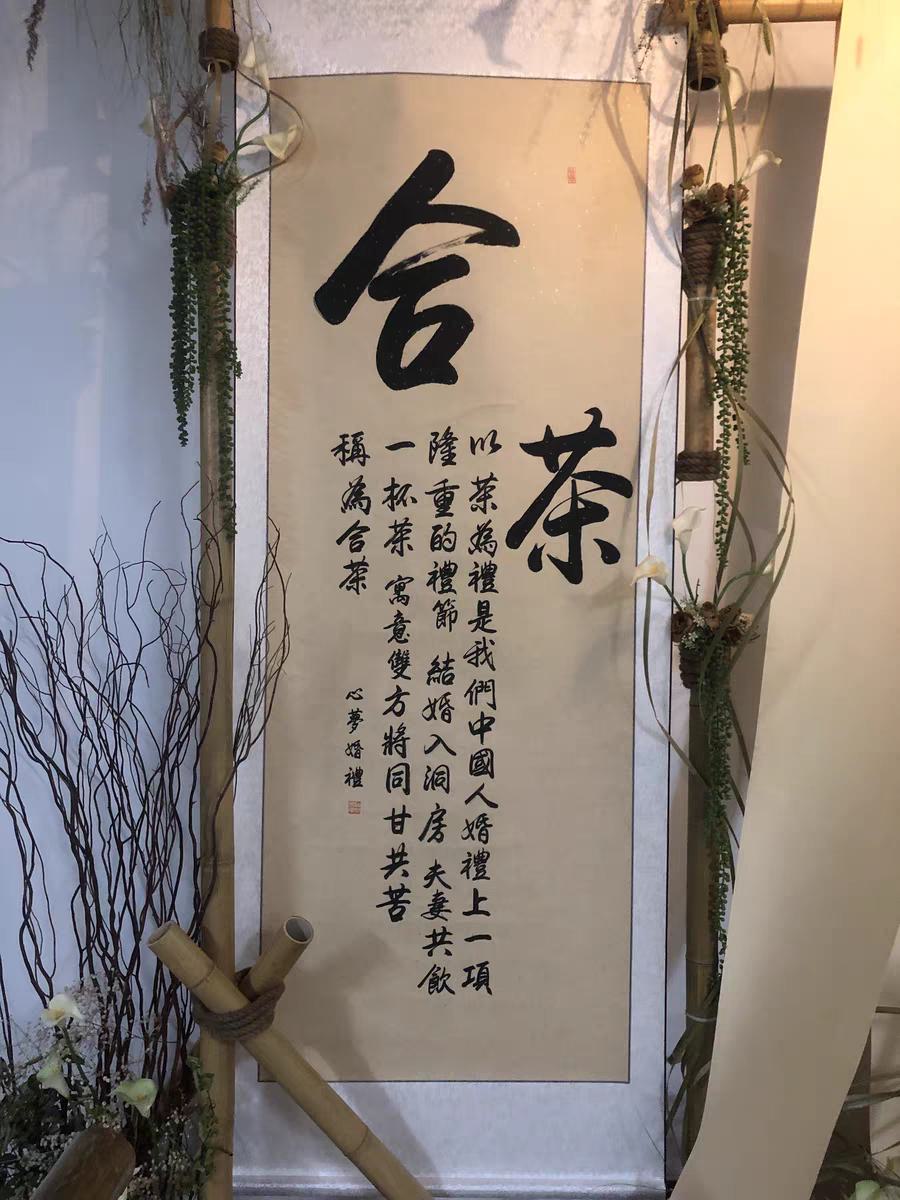 合
茶
以茶為禮是我們中國人婚禮上一項
隆重的禮節 結婚入洞房夫妻共飲
一杯茶 寓意雙方將同甘共苦
稱為合茶
心夢婚禮